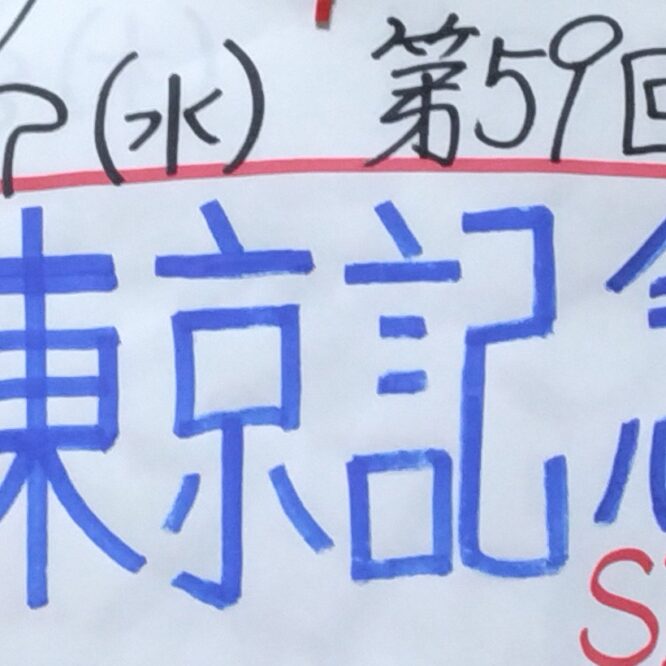 (水) 第59回
東京記念
S